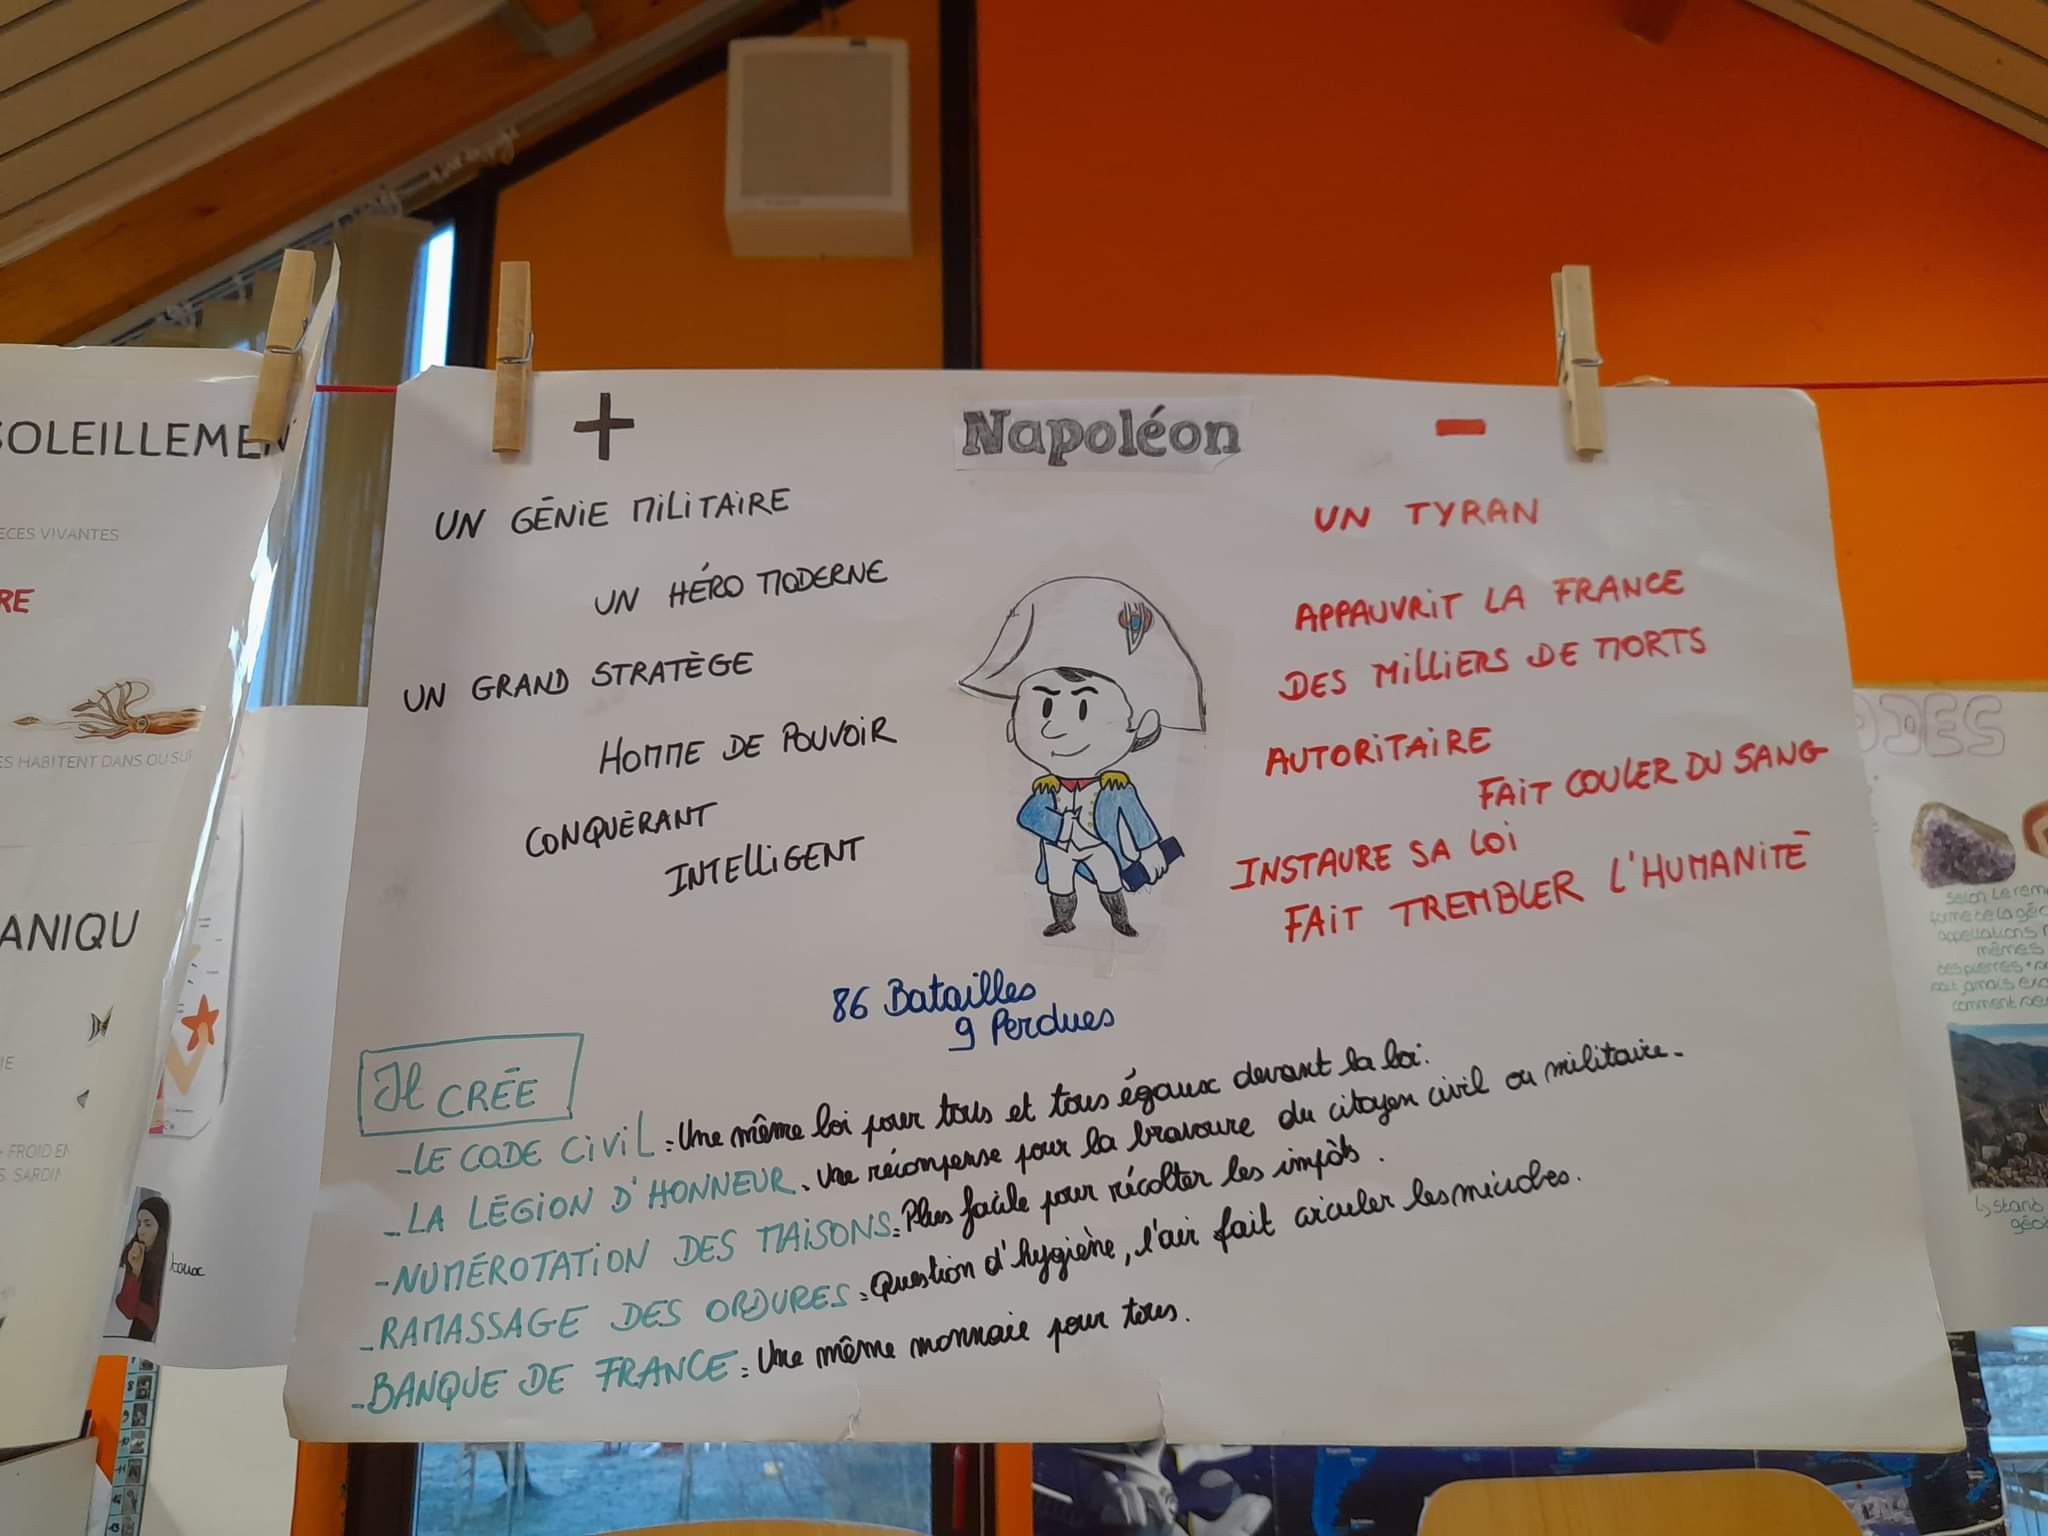 +
Napoléon
-
UN GÉNIE MILITAIRE
UN HÉRO MODERNE
UN GRAND STRATÈGE
HOMME DE POUVOIR
CONQUÉRANT
INTELLIGENT
UN TYRAN
APPAUVRIT LA FRANCE
DES MILLIERS DE MORTS
AUTORITAIRE
FAIT COULER DU SANG
INSTAURE SA LOI
FAIT TREMBLER L'HUMANITÉ
86 Batailles
9 Perdues
Il CRÉE
-LE CODE CIVIL: Une même loi pour tous et tous égaux devant la loi.
-LA LÉGION D'HONNEUR: Une récompense pour la bravoure du citoyen civil ou militaire.
-NUMÉROTATION DES MAISONS: Plus facile pour récolter les impôts.
-RAMASSAGE DES ORDURES: Question d'hygiène, l'air fait circuler les microbes.
-BANQUE DE FRANCE: Une même monnaie pour tous.
SOLEILLEMEN
ECES VIVANTES
RE
ES HABITENT DANS OU SUR
ANIQU
FROID EN
SARDIN
toux
ODES
appellations
mêmes
des pierres
comment